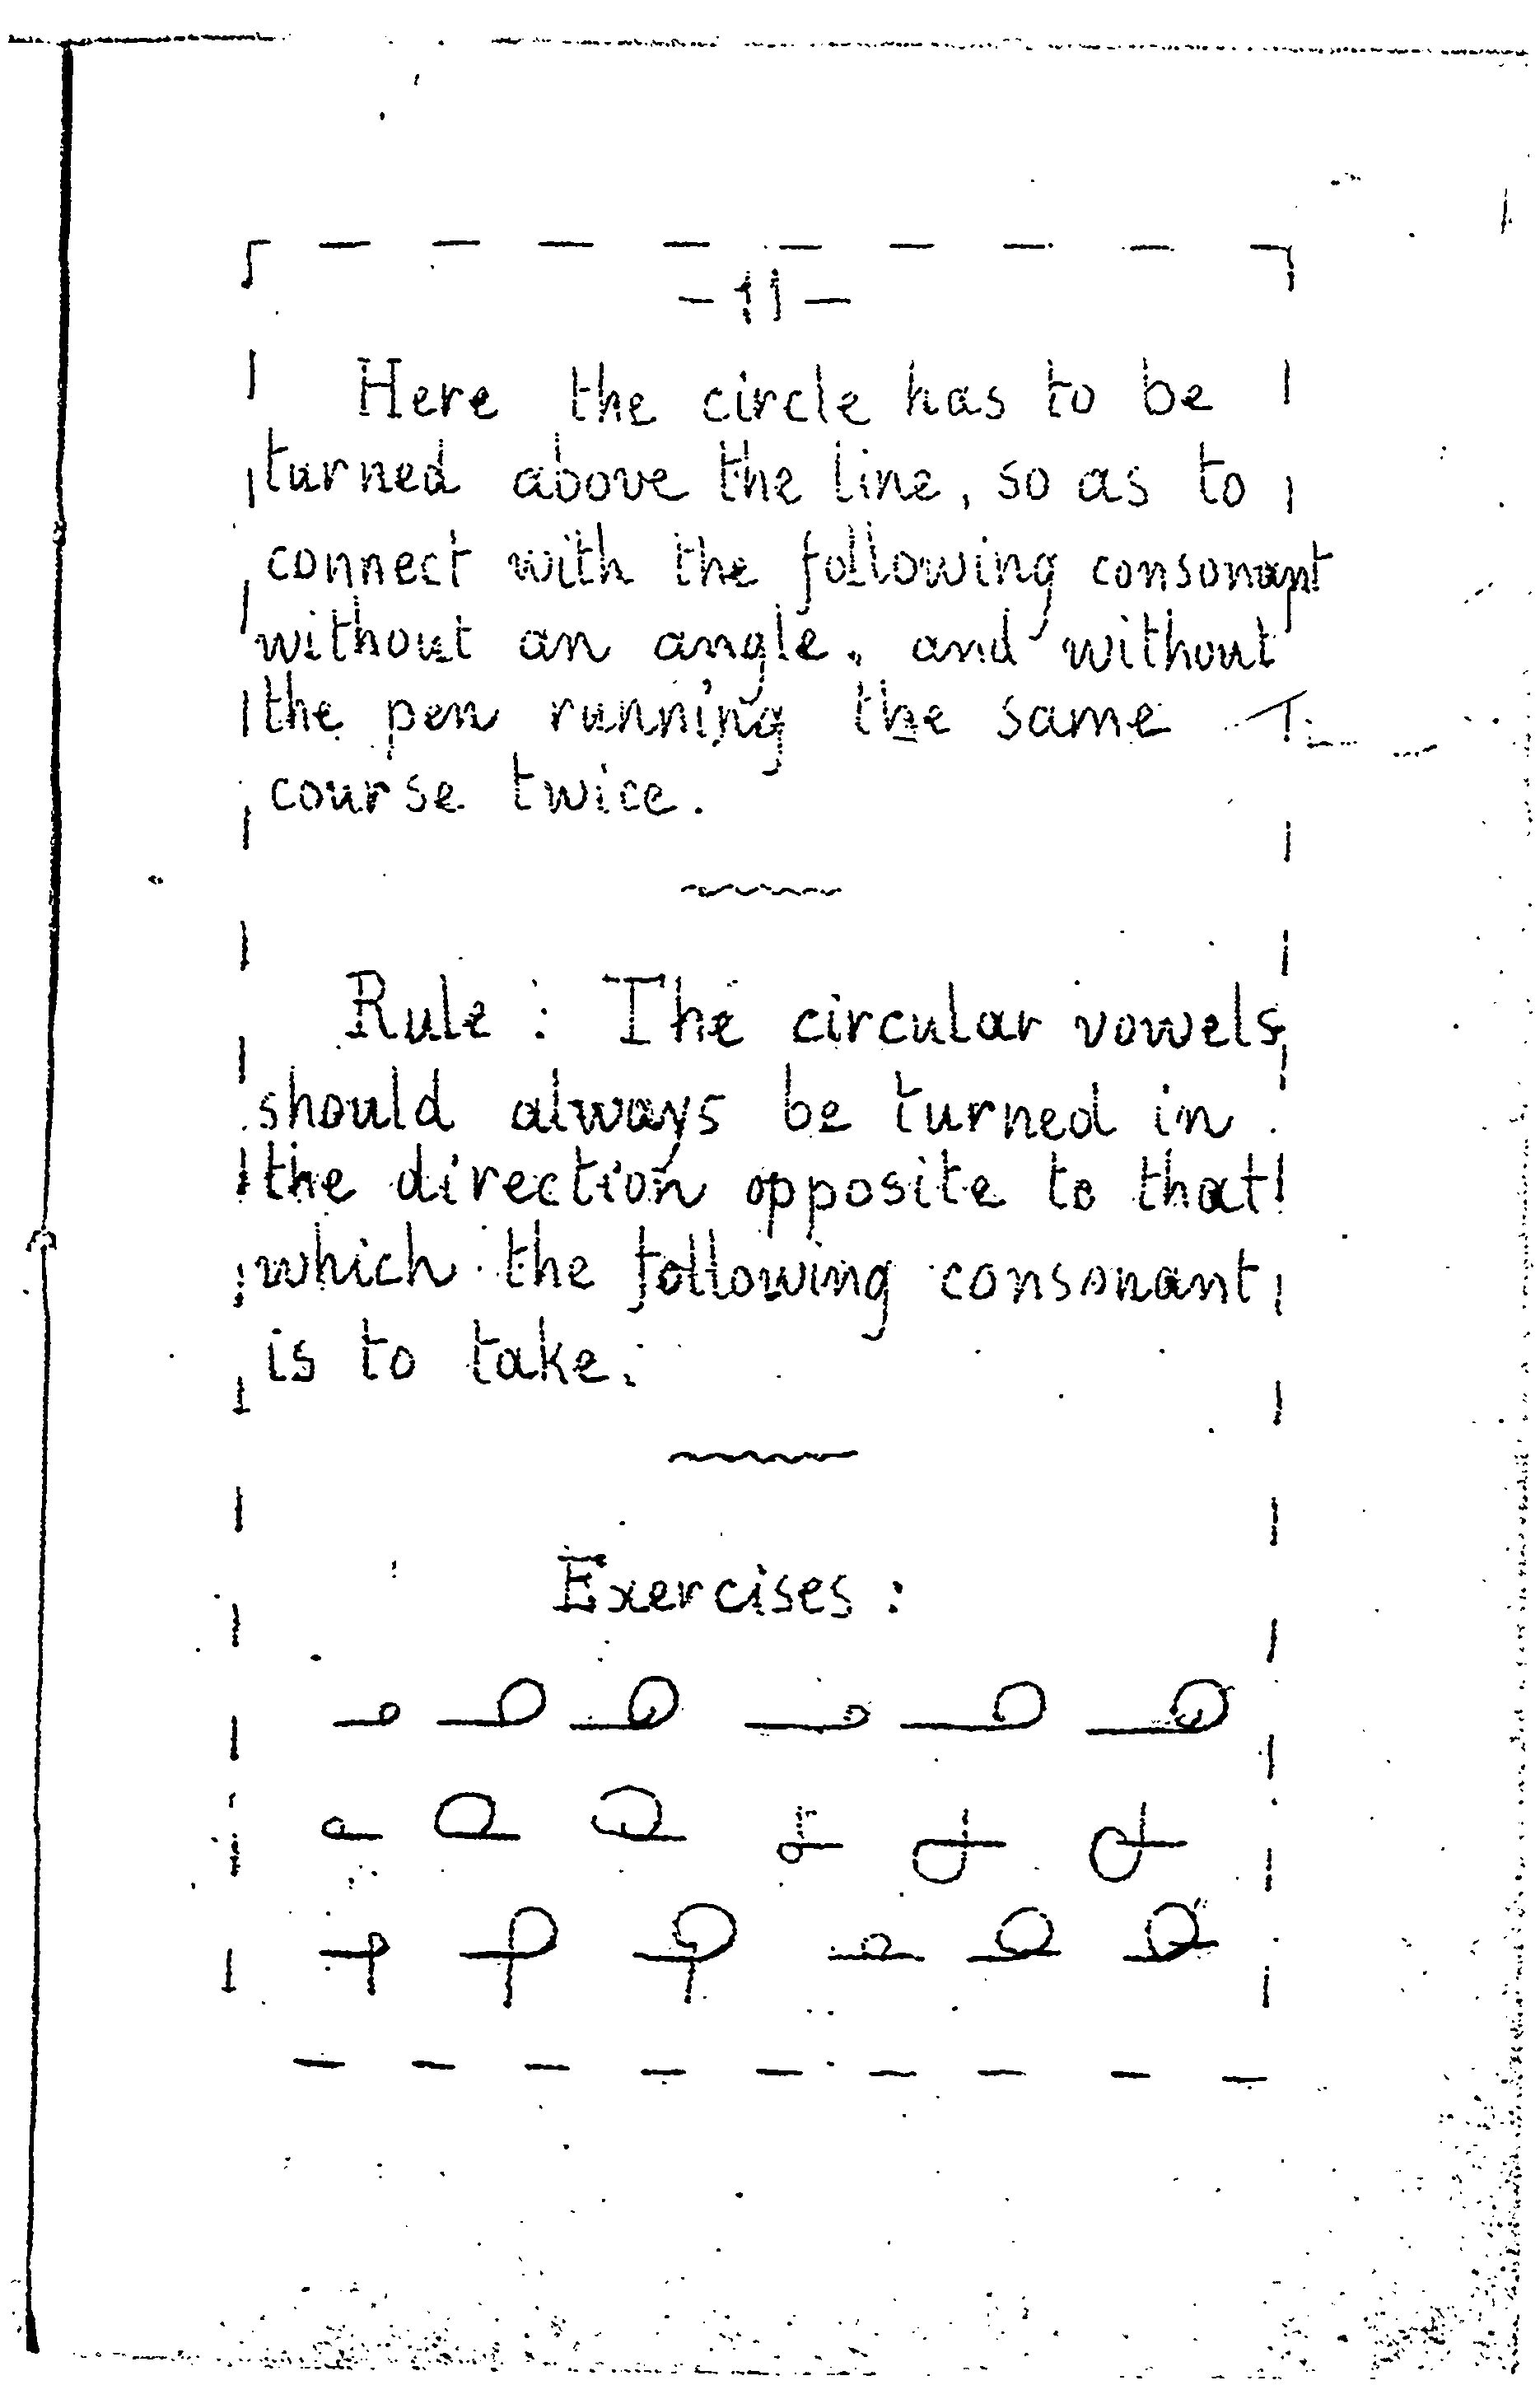 -11-
Here the circle has to be
turned above the line, so as to
connect with the following consonant
without an angle, and without
the pen running the same
course twice.
Rule : The circular vowels
should always be turned in
the direction opposite to that
which the following consonant
is to take.
Exercises :